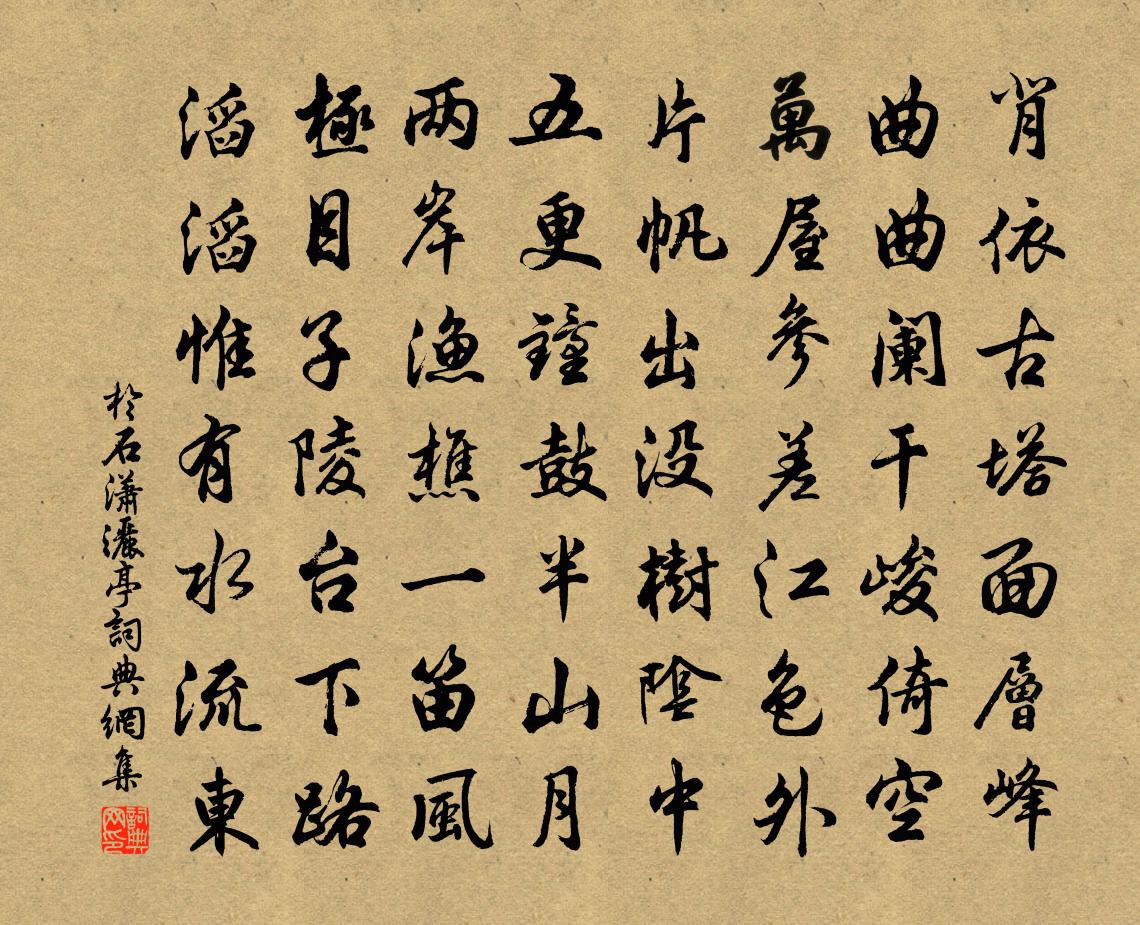 肖依古塔面層峰
曲曲阑干峻倚空
萬屋參差江色外
片帆出没樹陰中
五更鐘鼓半山月
两岸漁樵一笛風
極目子陵台下路
滔滔惟有水流東
於石瀟灑亭詞典網集
詞典网印